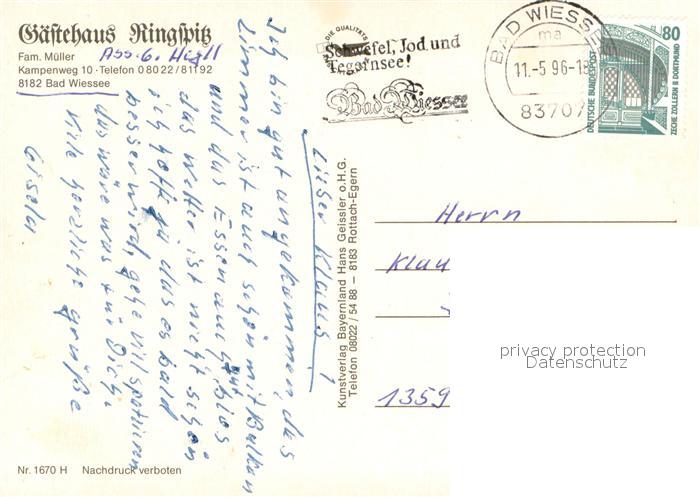 Gästehaus Ringspitz
Fam. Müller
Kampenweg 10 · Telefon 0 80 22 / 81192
8182 Bad Wiessee
DIE QUALITÄTS
Schwefel, Jod und
Tegernsee!
Bad Wiessee
BAD WIESSEE
ma
11.-5 96-18
83707
80
DEUTSCHE BUNDESPOST
ZECHE ZOLLERN II DORTMUND
Lieber Klaus!
Ich bin gut angekommen, das
Zimmer ist auch schön mit Balkon
und das Essen auch gut, blos
das Wetter ist nicht schön
ich hoffe das es bald
besser wird, gehe viel spatzieren
das wäre was für Dich.
viele herzliche grüße
Gisela
Kunstverlag Bayernland Hans Geissler o.H.G.
Telefon 08022 / 54 88 — 8183 Rottach-Egern
Herrn
Klau
1359
privacy protection
Datenschutz
Nr. 1670 H Nachdruck verboten